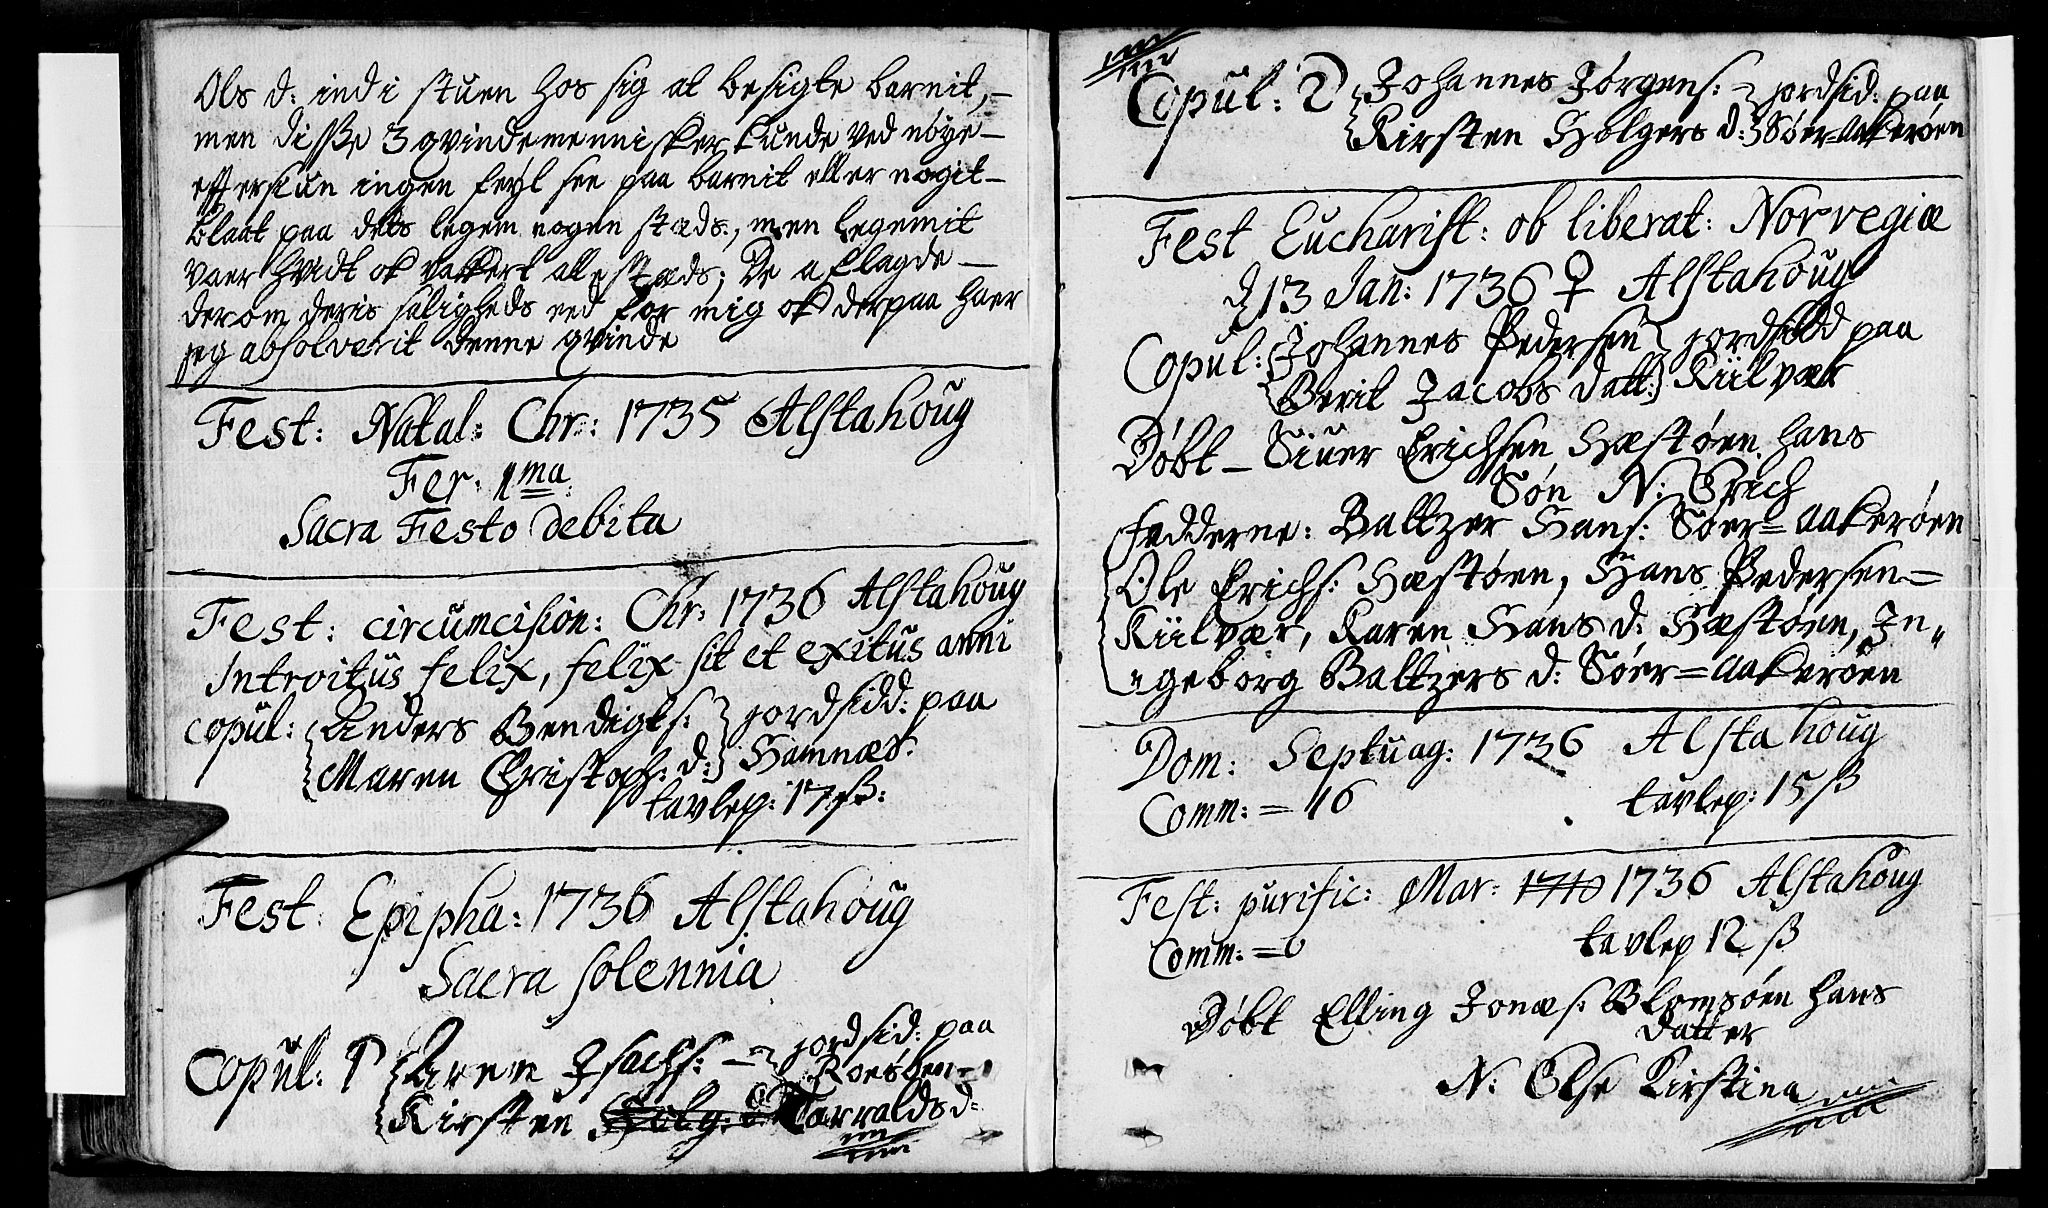 Ols d: ind i stuen hos sig at besigte barnit,–
men disse 3 qvindemennisker kunde ved nøye–
effersiun ingen feyl see paa barnit eller nogit–
blaat paa dets legem nogen stæds:, men legemit
vaer hvidt ok vakkert alle stæds; De aflagde–
derom deris saligheds eed for mig ok derpaa haer
jeg absolverit denne qvinde
Fest: Natal: Chr: 1735 Alstahoug
Fer. 1ma.
Sacra Festo Debita
Fest: circumcision: Chr: 1736 Alstahoug
Introitus felix, felix sit et exitus anni
copul: Anders Bendigts: jordsidd: paa
Maren Christoph: d: Hamnæs.
tavlep: 17 ß:
Fest: Epipha: 1736 Alstahoug
Sacra solennia
Copul: 1 Arem Isachs: – jordsid: paa
Roesøen–
Kirsten Holg: d: Tarralds d=
Copul: 2 Johannes Jørgens: jordsid: paa
Kirsten Holgers d: Søer=Aakerøen
Fest Eucharist: ob liberat: Norvegiæ
d 13 Jan: 1736 ♀ Alstahoug
Copul: Johannes Pedersen jordsidd paa
Berit Jacobs datt: Kiilvær
Døbt – Siuer Erichsen Hæstøen hans
Søn N: Erich
Fadderne: Baltzer Hans: Søer=Aakerøen
Ole Erichs: Hæstøen, Hans Pedersen=
Kiilvær, Karen Hans d: Hæstøen, In„
„geborg Baltzers d: Søer=Aakerøen
Dom: Septuag: 1736 Alstahoug
Comm: = 16 tavlep: 15 ß
Fest: purific: Mar: 1710 1736 Alstahoug
Comm: = 0 tavlep 12 ß
Døbt Elling Jonæs: Blomsøen hans
datter
N: Else Kirstina